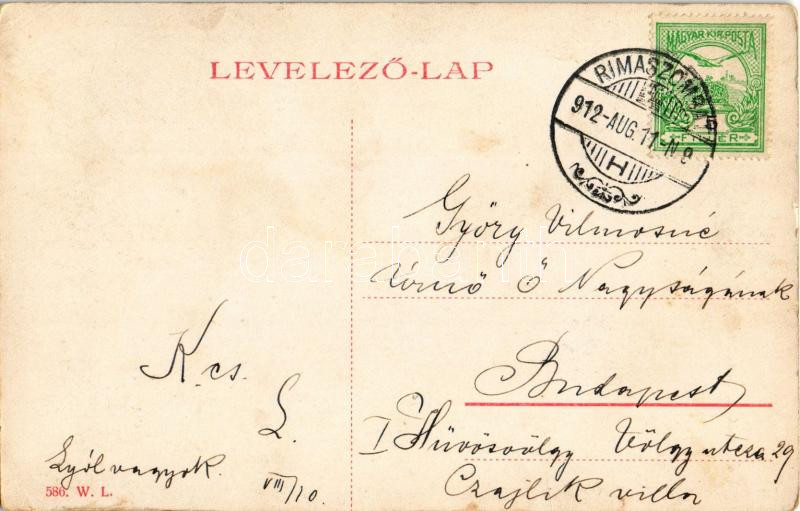 LEVELEZŐ-LAP
MAGYAR KIR. POSTA
5
FILLÉR
RIMASZOMBAT
912-AUG. 11-N 9
H
darabanth
Györy Vilmosné
Ő Nagyságának
Budapest
I Hüvösvölgy Völgy utcza 29
Czajlik villa
K. cs.
L.
Lyól vagyok.
VIII/10.
586. W. L.